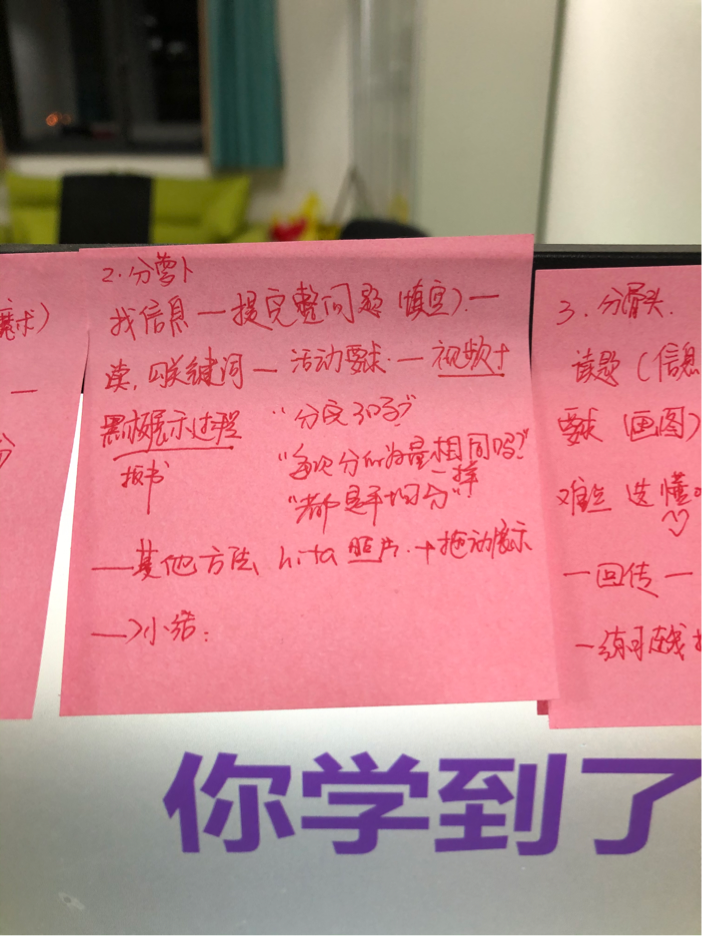 2.分萝卜
找信息—提完整问题(填空).—
读,四关键词—活动要求.—视频+
黑板展示过程 “分完了吗?”
板书 “每次分的为是相同吗?”
一样
“都是平均分”
—其他方法 hita 照片.+拖动展示
—>小结:
3.分骨头.
读题(信息
要求(画图)
难点 选懂
—回传—
—练习连线
魔术)
—
分
你学到了